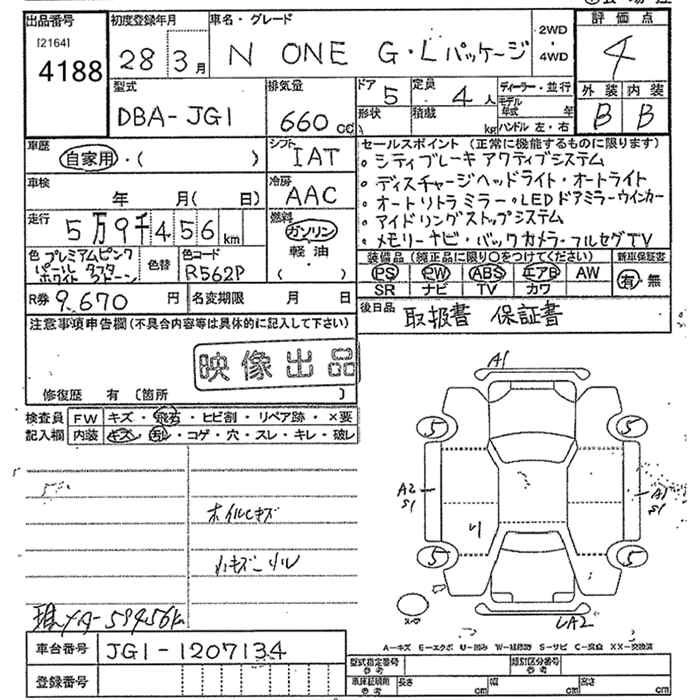 出品番号 初度登録年月 車名・グレード 評価点
[2164] 4188
28年3月 N ONE G・Lパッケージ 2WD・4WD 4
型式 排気量 ドア 定員 ディーラー・並行 外装 内装
DBA-JG1 660cc 5 4人 モデル年式 年 B B
形状 積載 kg ハンドル 左・右
車歴 シフト セールスポイント (正常に機能するものに限ります)
自家用・( ) IAT
。シティブレーキアクティブシステム
車検 冷房
年 月( 日) AAC
。ディスチャージヘッドライト・オートライト
。オートリトラミラー・LEDドアミラーウインカー
走行 燃料
5万9千456km ガソリン
。アイドリングストップシステム
軽油
。メモリーナビ・バックカメラ・フルセグTV
色 プレミアムピンクパール タフタホワイト ツートーン 色替 色コード R562P ・( )
装備品 (純正品に限り○をつけてください) 新車保証書
PS PW ABS エアB AW 有・無
SR ナビ TV カワ
R券 9,670円 名変期限 月 日
後日品 取扱書 保証書
注意事項申告欄 (不具合内容等は具体的に記入して下さい)
映像出品
修復歴 有 (箇所 )
検査員記入欄 FW キズ・飛石・ヒビ割・リペア跡・×要
内装 キズ・汚レ・コゲ・穴・スレ・キレ・破レ
A1
5 5
A2 S1 A1 S1
ホイルキズ
5 5
A2
車台番号 JG1-1207134
登録番号
A=キズ E=エクボ U=凹み W=補修跡 S=サビ C=腐食 XX=交換済
型式指定番号 参考 類別区分番号 参考
車庫証明用 参考 長さ cm 幅 cm 高さ cm